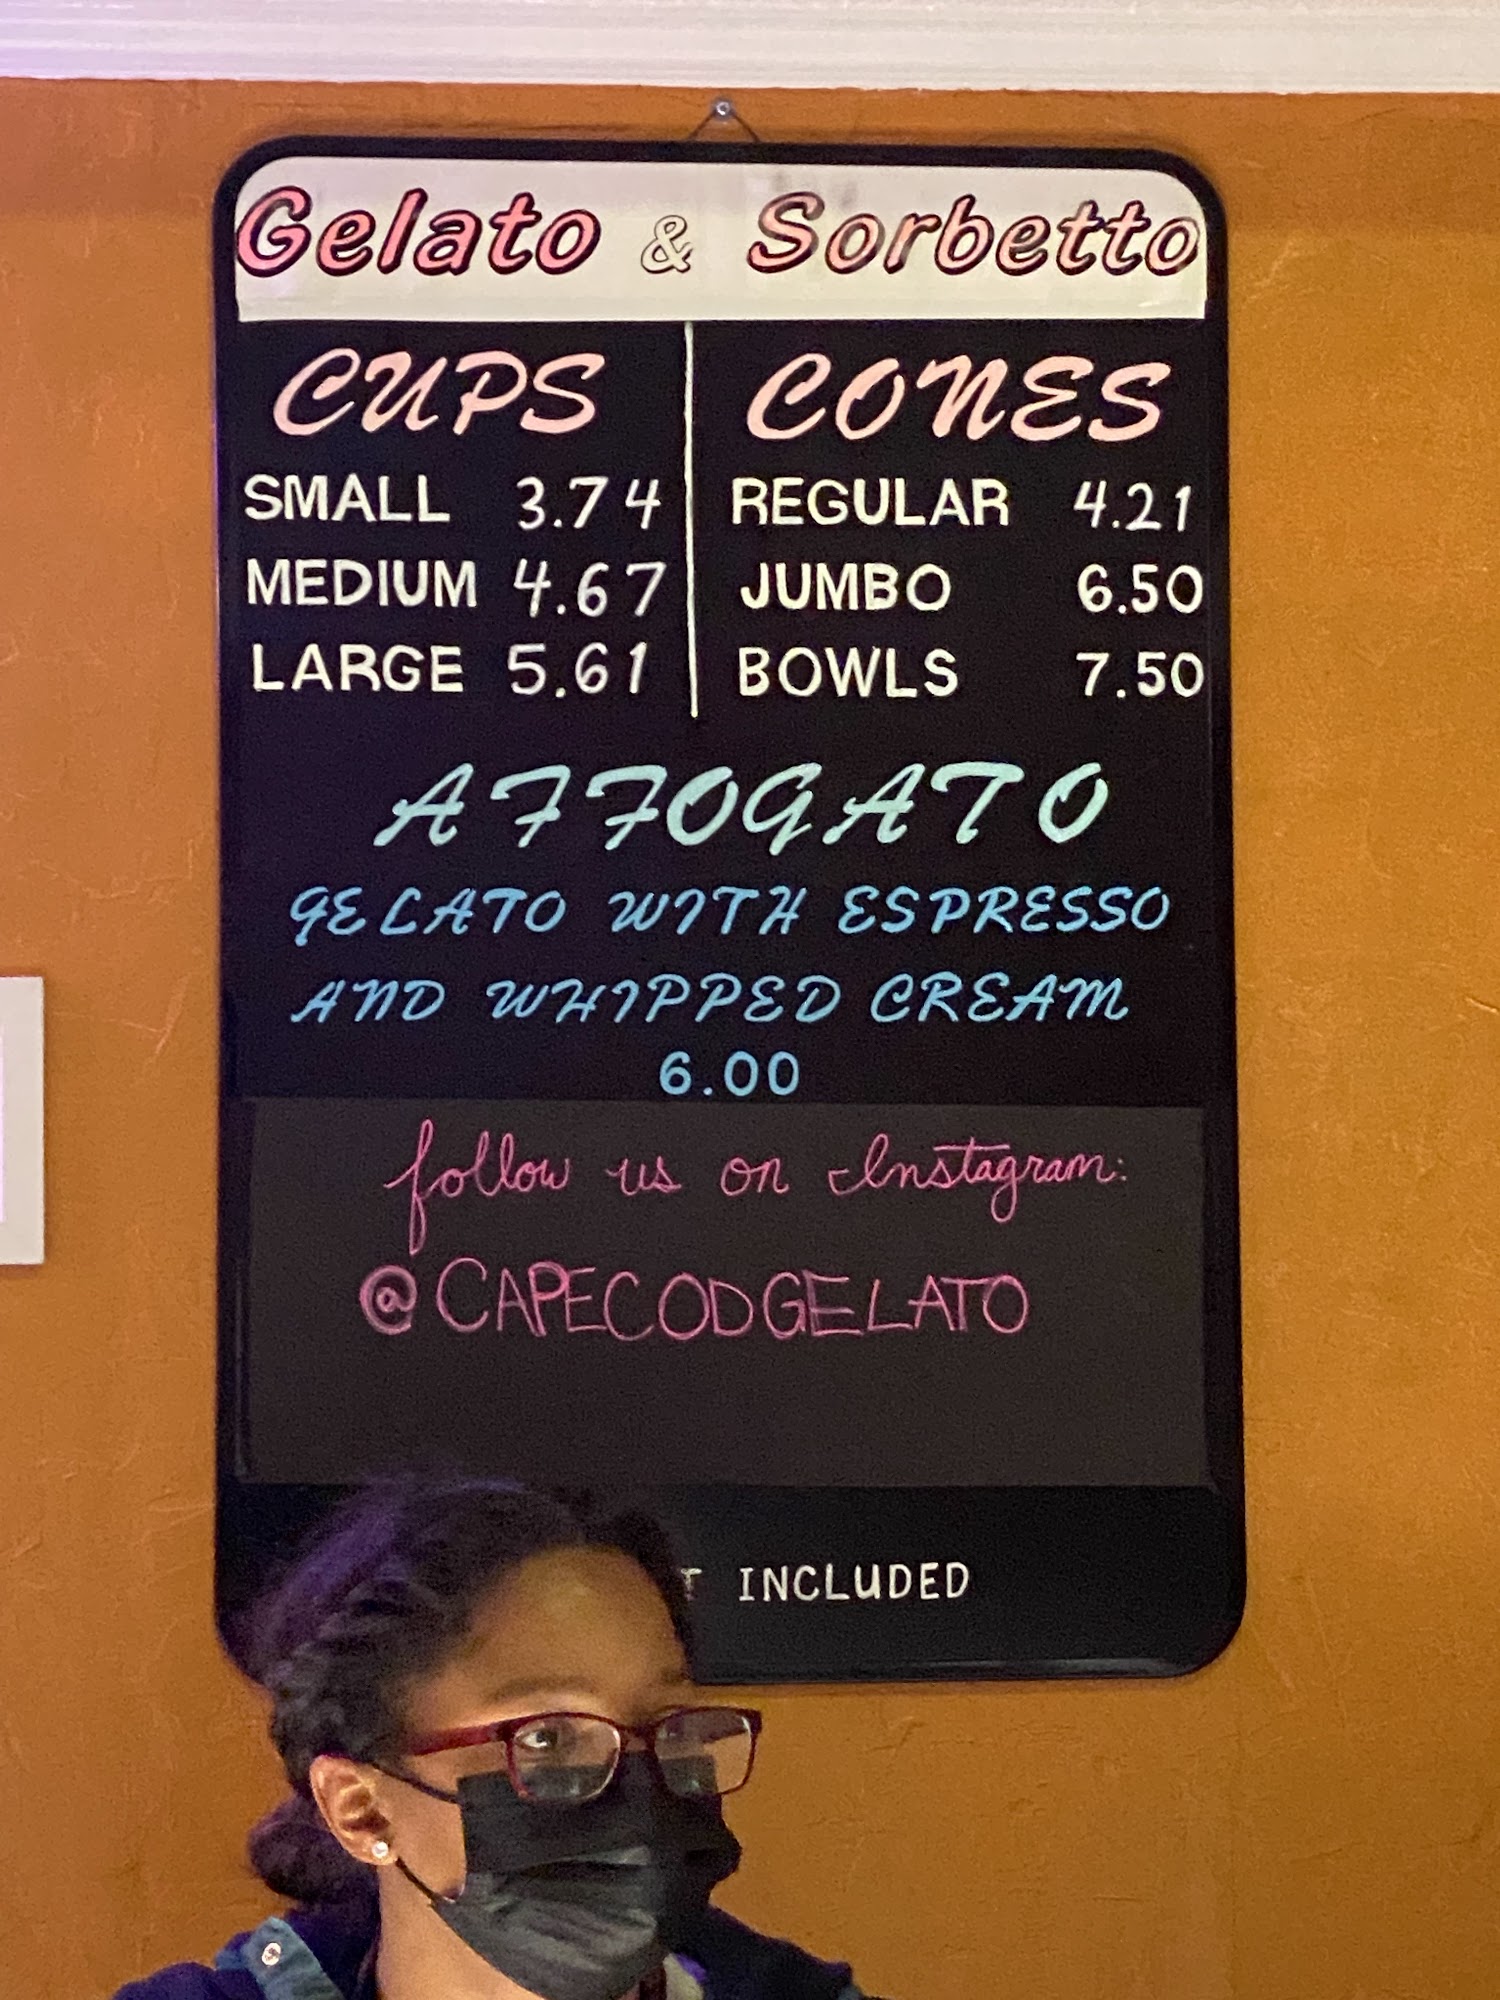 Gelato & Sorbetto
CUPS
SMALL 3.74
MEDIUM 4.67
LARGE 5.61
CONES
REGULAR 4.21
JUMBO 6.50
BOWLS 7.50
AFFOGATO
GELATO WITH ESPRESSO
AND WHIPPED CREAM
6.00
follow us on Instagram:
@CAPECODGELATO
INCLUDED